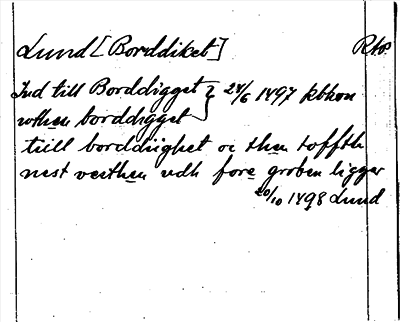 Lund [Borddiket] Rtp
Ind till Borddigget } 24/6 1497 kbkon
wthen borddigget
tiill borddiighet oc then toffth
nest vesthen udh fore groben ligger
20/10 1498 Lund